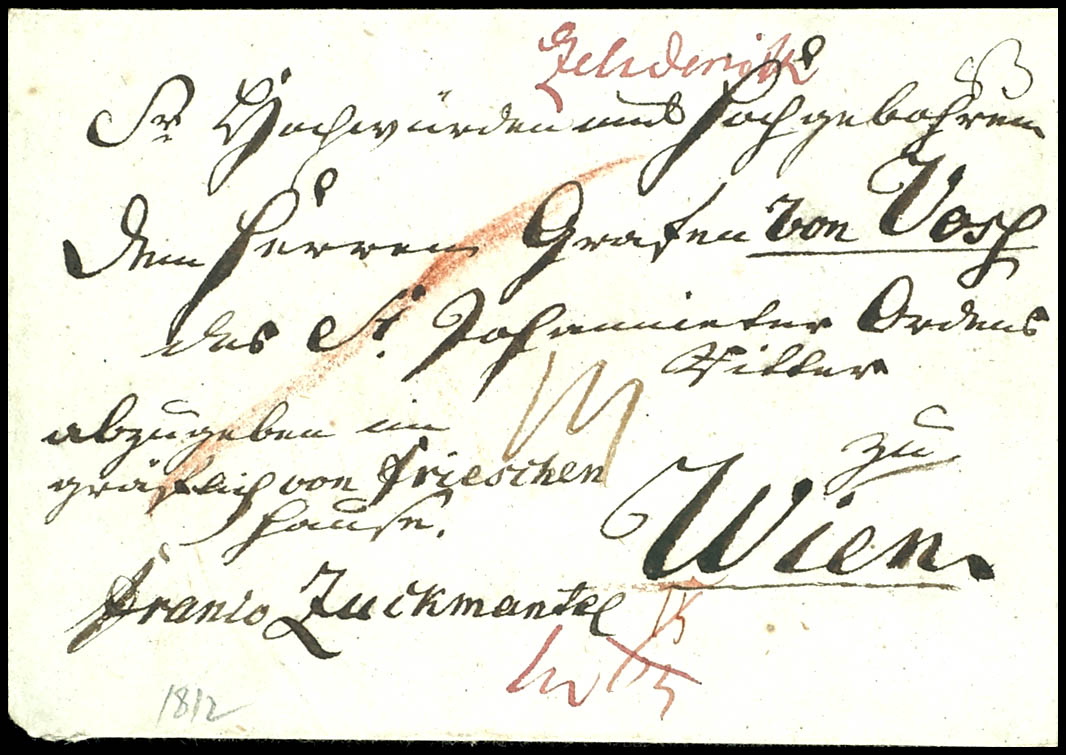 Zehdenick
Sr Hochwürden und Hochgebohren
dem Herren Grafen von Vosſ
des St. Johannieter Ordens
Ritter
abzugeben im
gräflich von Frieschen
Hause.
zu
Wien.
Franco Zuckmantel
1812